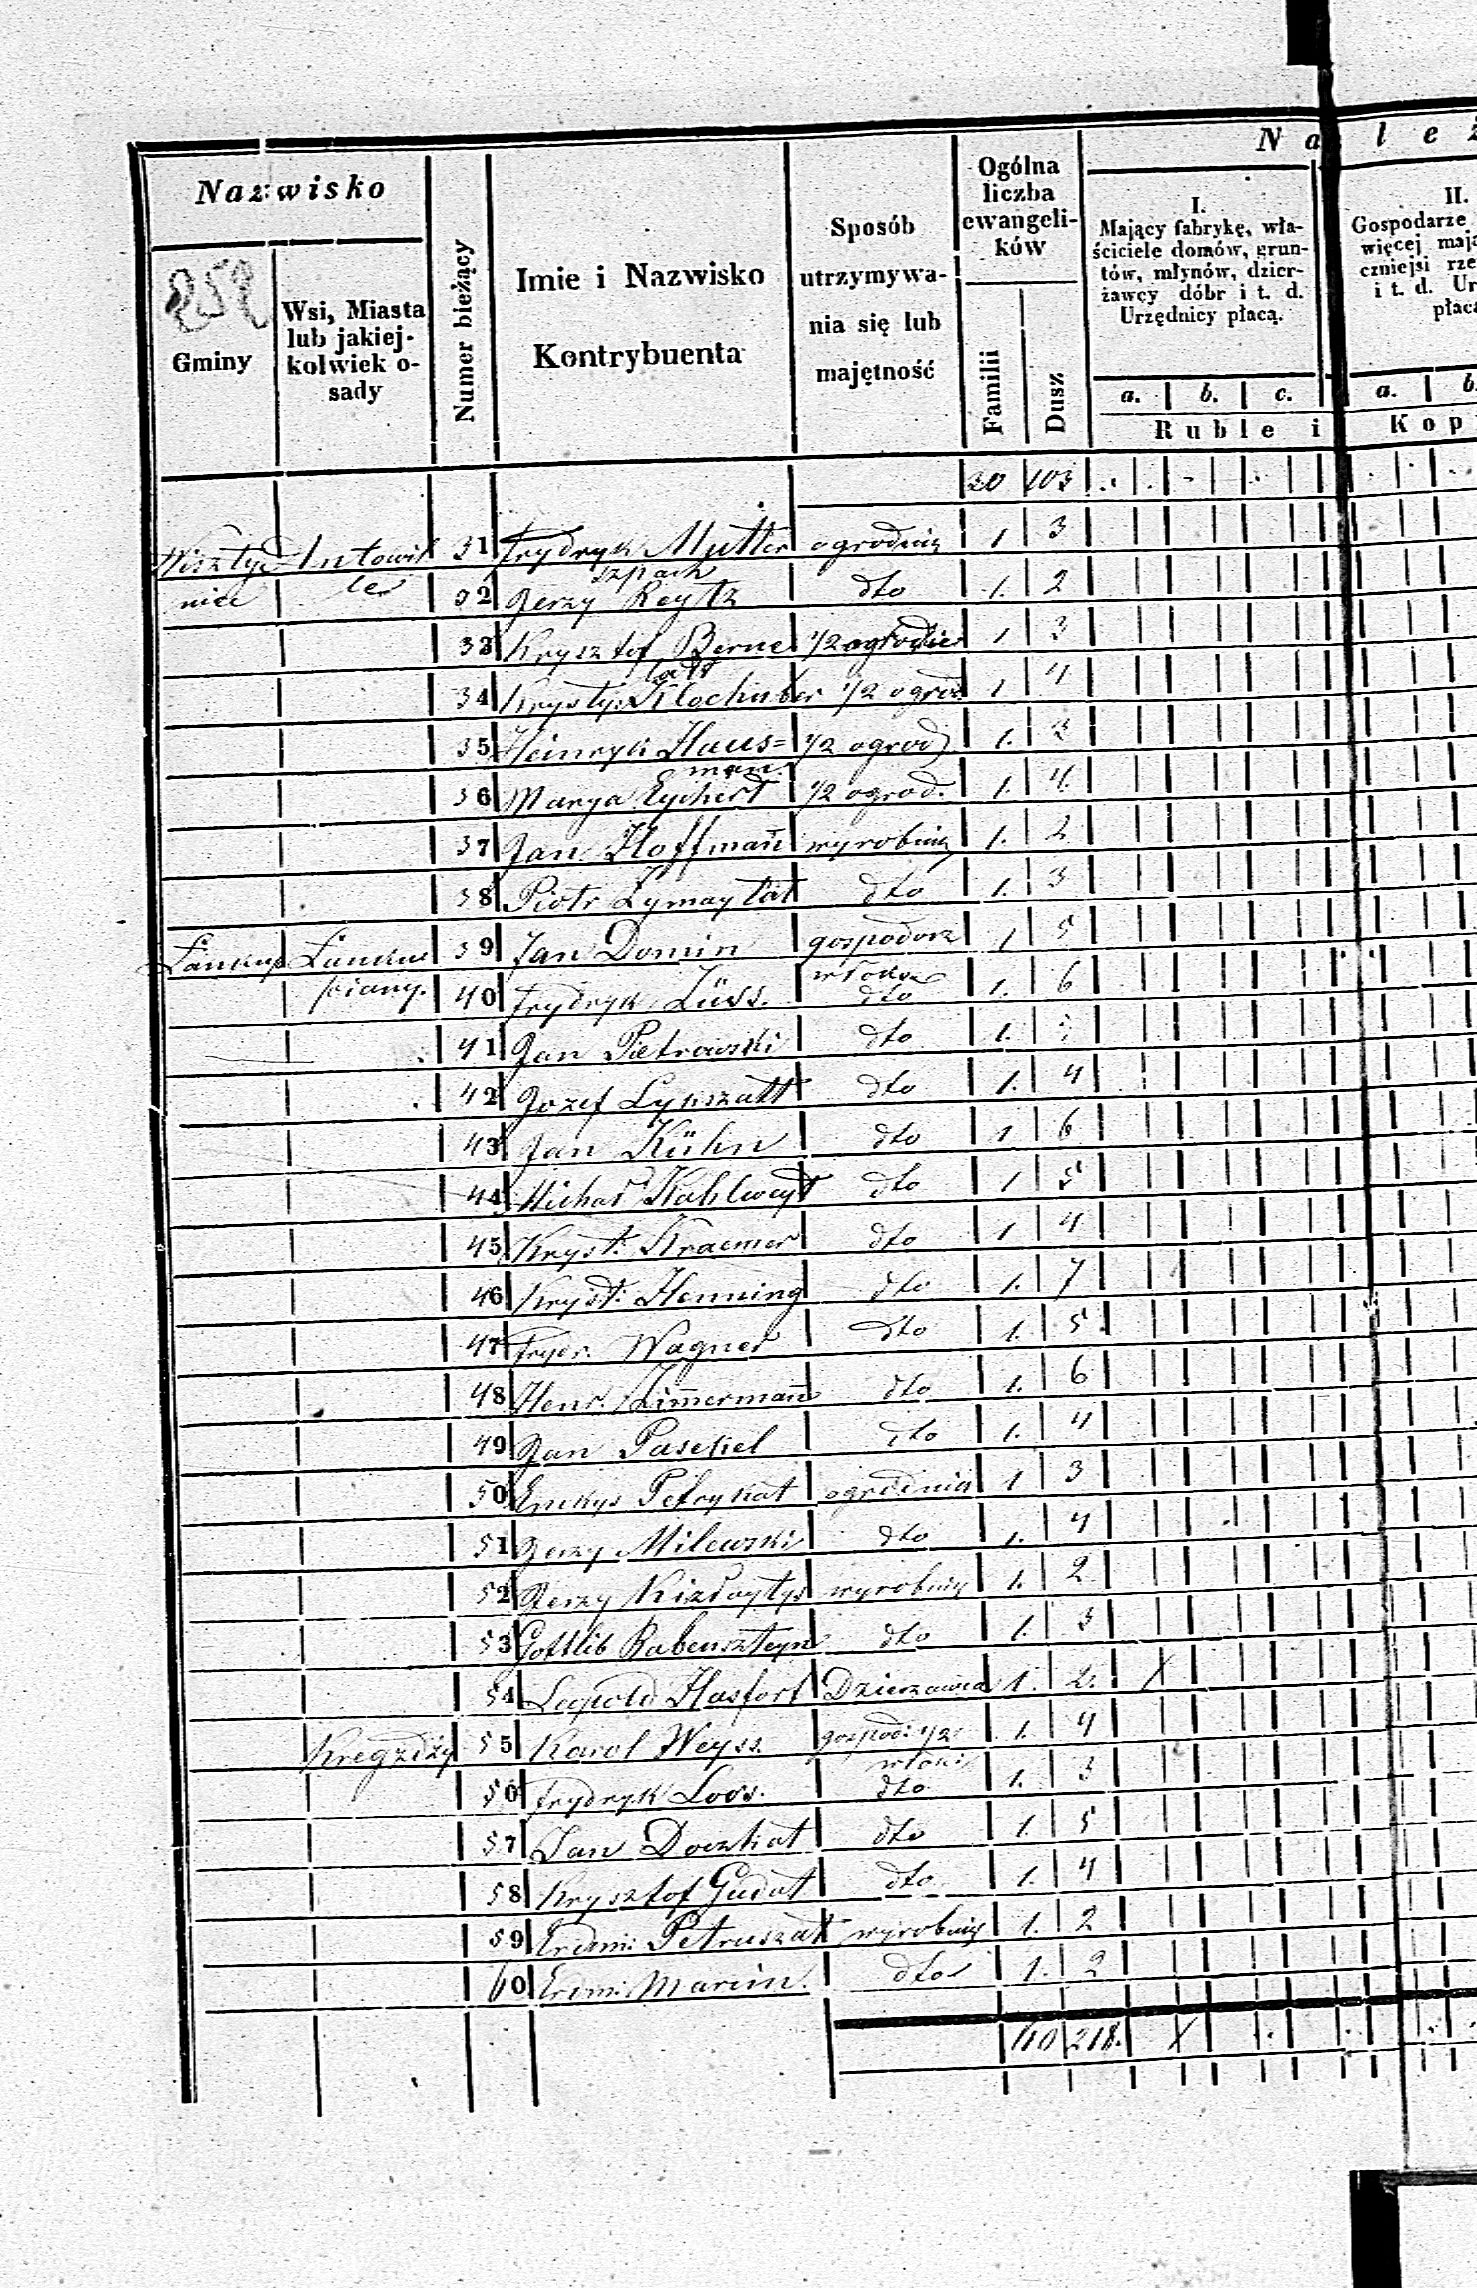 Nazwisko
Gminy
Wsi, Miasta
lub jakiej-
kolwiek o-
sady
Numer bieżący
Imie i Nazwisko
Kontrybuenta
Sposób
utrzymywa-
nia się lub
majętność
Ogólna
liczba
ewangeli-
ków
Familii
Dusz
N a l e ż
I.
Mający fabrykę, wła-
ściciele domów, grun-
tów, młynów, dzier-
żawcy dóbr i t. d.
Urzędnicy płacą.
a. b. c.
II.
Gospodarze
więcej mają
czniejsi rze
i t. d. Ur
płacą
a. b.
Ruble i Kop
103
Wisztyc 31 Frydryk Mutter ogrodnik 1 3
nice le szpach
32 Jerzy Reytz dto 1. 2
33 Krysztof Berne 1/2 ogrodnik 1 3
34 Krystyn 1/2 ogrod. 1 4
35 Heinryk Haus= 1/2 ogrod 1.
man.
36 Marya Eychert 1/2 ogrod. 1. 4.
37 Jan Hoffman̄ wyrobnik 1. 2
38 Piotr dto 1. 3
39 Jan Domin gospodarz 1 5
piany.
40 Frydryk Lüss. dto 1. 6
41 Jan Pietrowski dto 1.
42 Jozef Lypszatt dto 1. 4
43 Jan Kühn dto 1 6
44 Michał Kahlweyt dto 1 5
45 Kryst: Kraemer dto 1 4
46 Kryst: Henning dto 1. 7
47 Frydr. Wagner dto 1. 5
48 Henr. Zim̄erman̄ dto 1. 6
49 Jan Pasekel dto 1. 4
50 Petrykat ogrodnik 1 3
51 Jerzy Milewski dto 1. 4
52 Jerzy wyrobnik 1. 2
53 Gottlib Rabenszteyn dto 1. 3
54 Leopold Hasfort Dzierzawca 1. 2.
Kregzdży 55 Karol Weyss gospod: 1/2 1. 4
włoki
56 Frydryk Loos. dto 1. 3
57 Jan Doczkat dto 1. 5
58 Krysztof Gudat dto 1. 4
59 Erdm: Petruszat wyrobnik 1. 2
60 Erdm: Marcin. dto 1. 2
218.